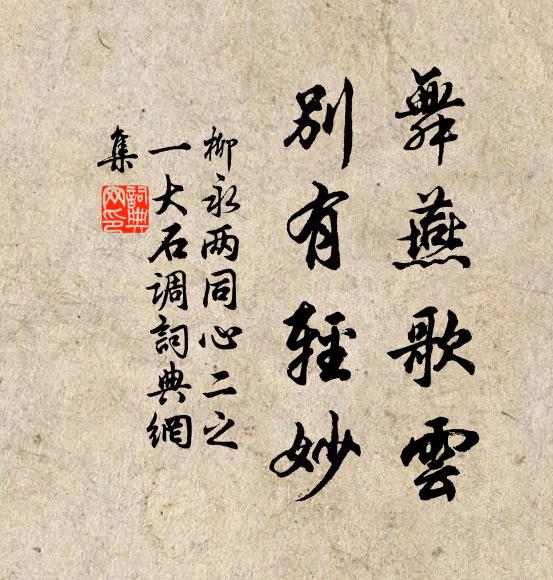 舞燕歌雲
別有輕妙
柳永两同心二之
一大石调詞典網
集
詞典網印